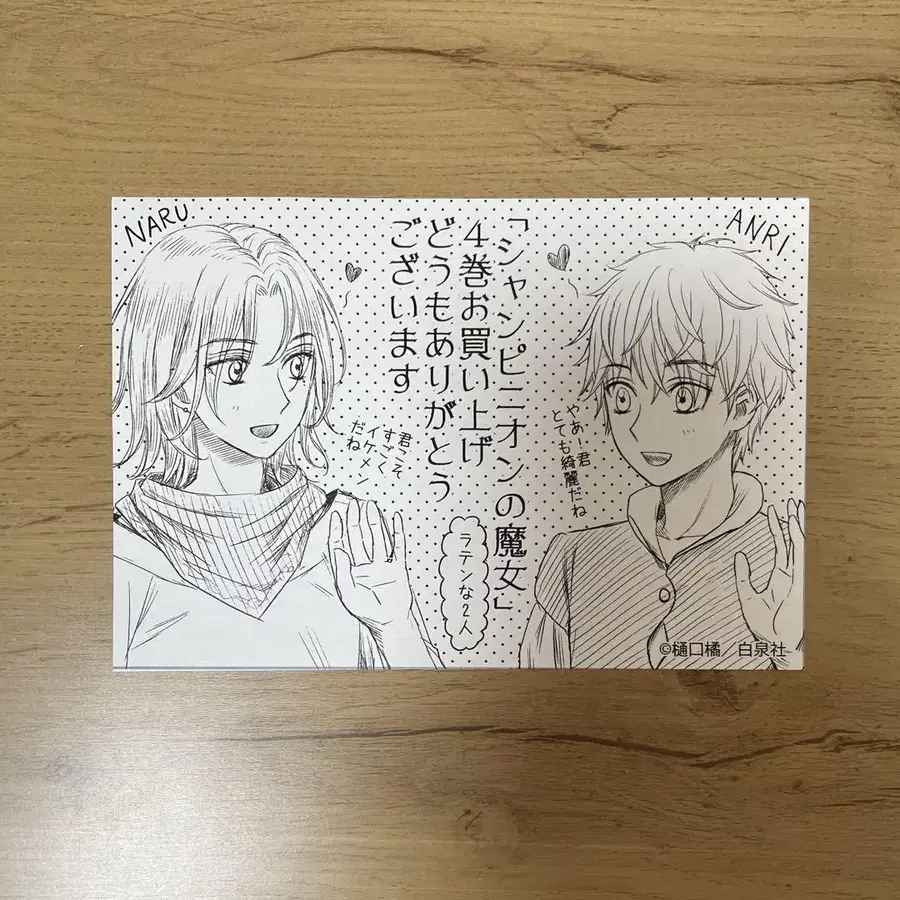 NARU
ANRI
「シャンピニオンの魔女」
4巻お買い上げ
どうもありがとう
ございます
やあー君
とても綺麗だね
君こそ
すごく
イケメン
だね
ラテンな2人
©樋口橘／白泉社